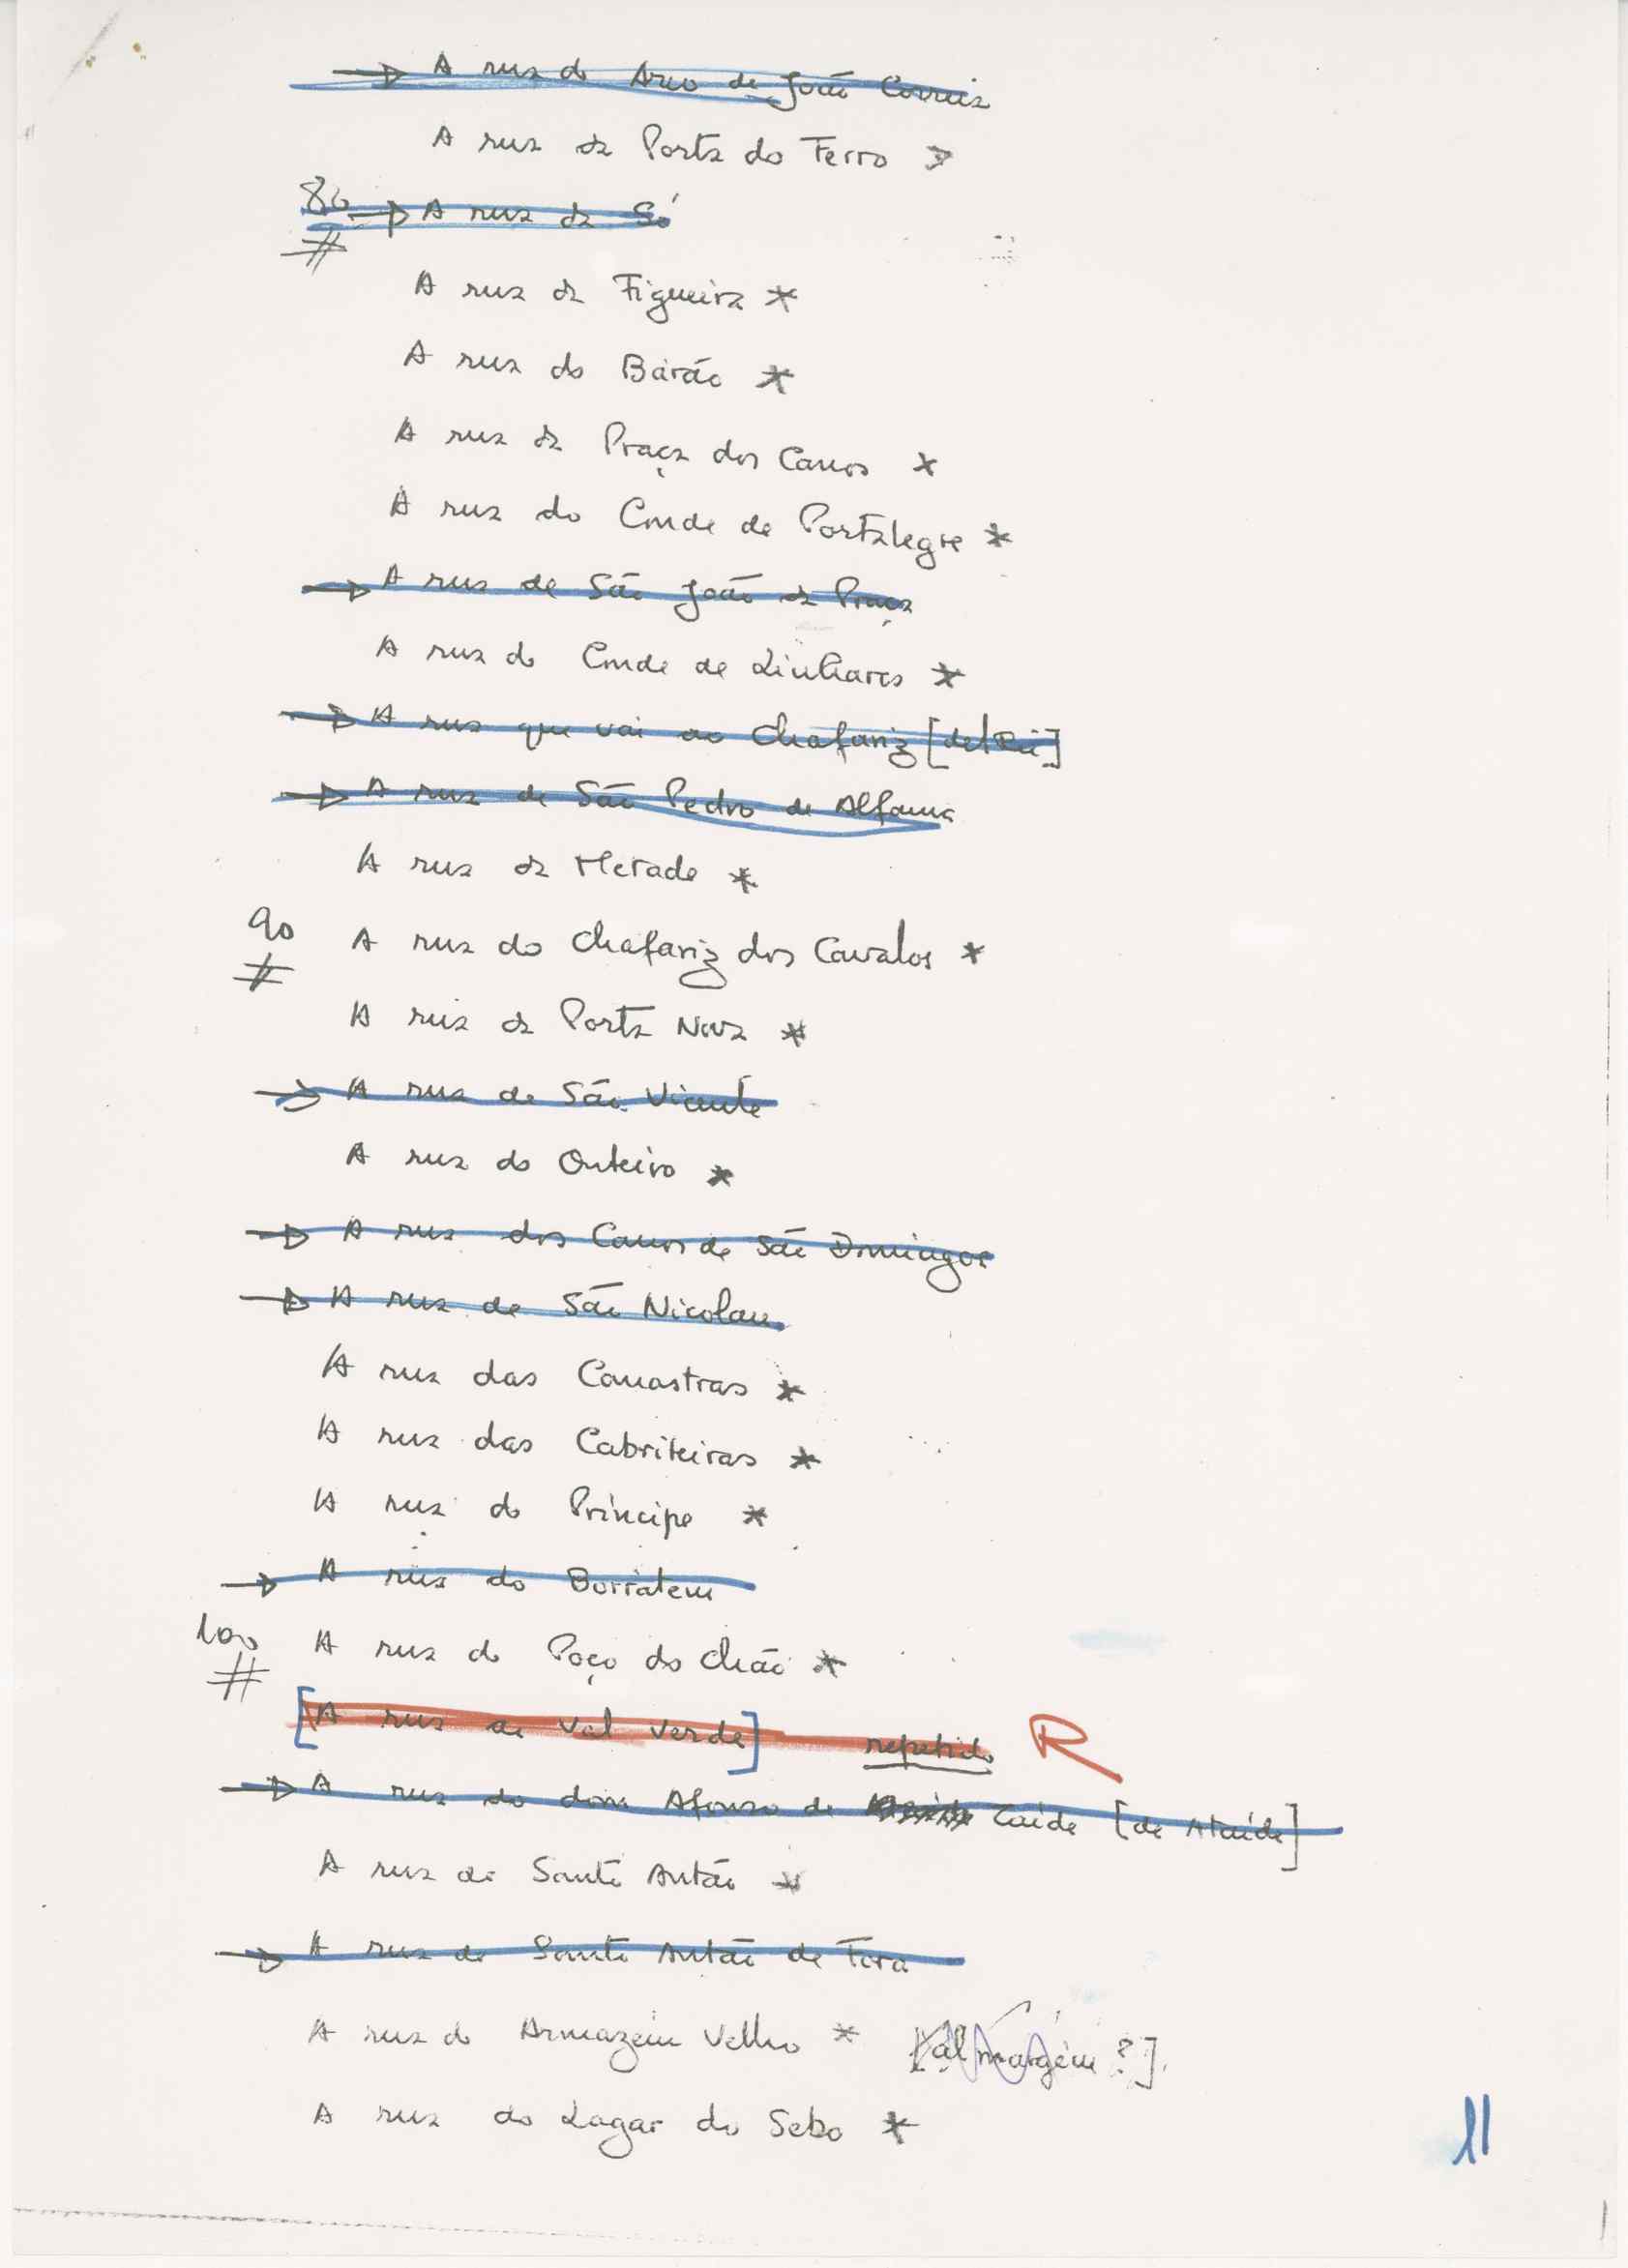 → A rua do Arco de João Correia
A rua da Porta do Ferro >
80 → A rua da Sé
#
A rua da Figueira *
A rua do Barão *
A rua da Praça dos Canos *
A rua do Conde de Portalegre *
→ A rua de São João da Praça
A rua do Conde de Linhares *
→ A rua que vai ao Chafariz [del Rei]
→ A rua de São Pedro de Alfama
A rua da Metade *
90 A rua do Chafariz dos Cavalos *
#
A rua da Porta Nova *
→ A rua de São Vicente
A rua do Outeiro *
→ A rua dos Canos de São Domingos
→ A rua de São Nicolau
A rua das Canastras *
A rua das Cabriteiras *
A rua do Príncipe *
→ A rua do Borratem
100 A rua do Poço do Chão *
#
[A rua de Val Verde] repetido R
→ A rua do dom Afonso de Taíde [de Ataíde]
A rua de Santo Antão *
→ A rua de Santo Antão de Fora
A rua do Armazém Velho * [almargem ?]
A rua do Lagar do Sebo *
11